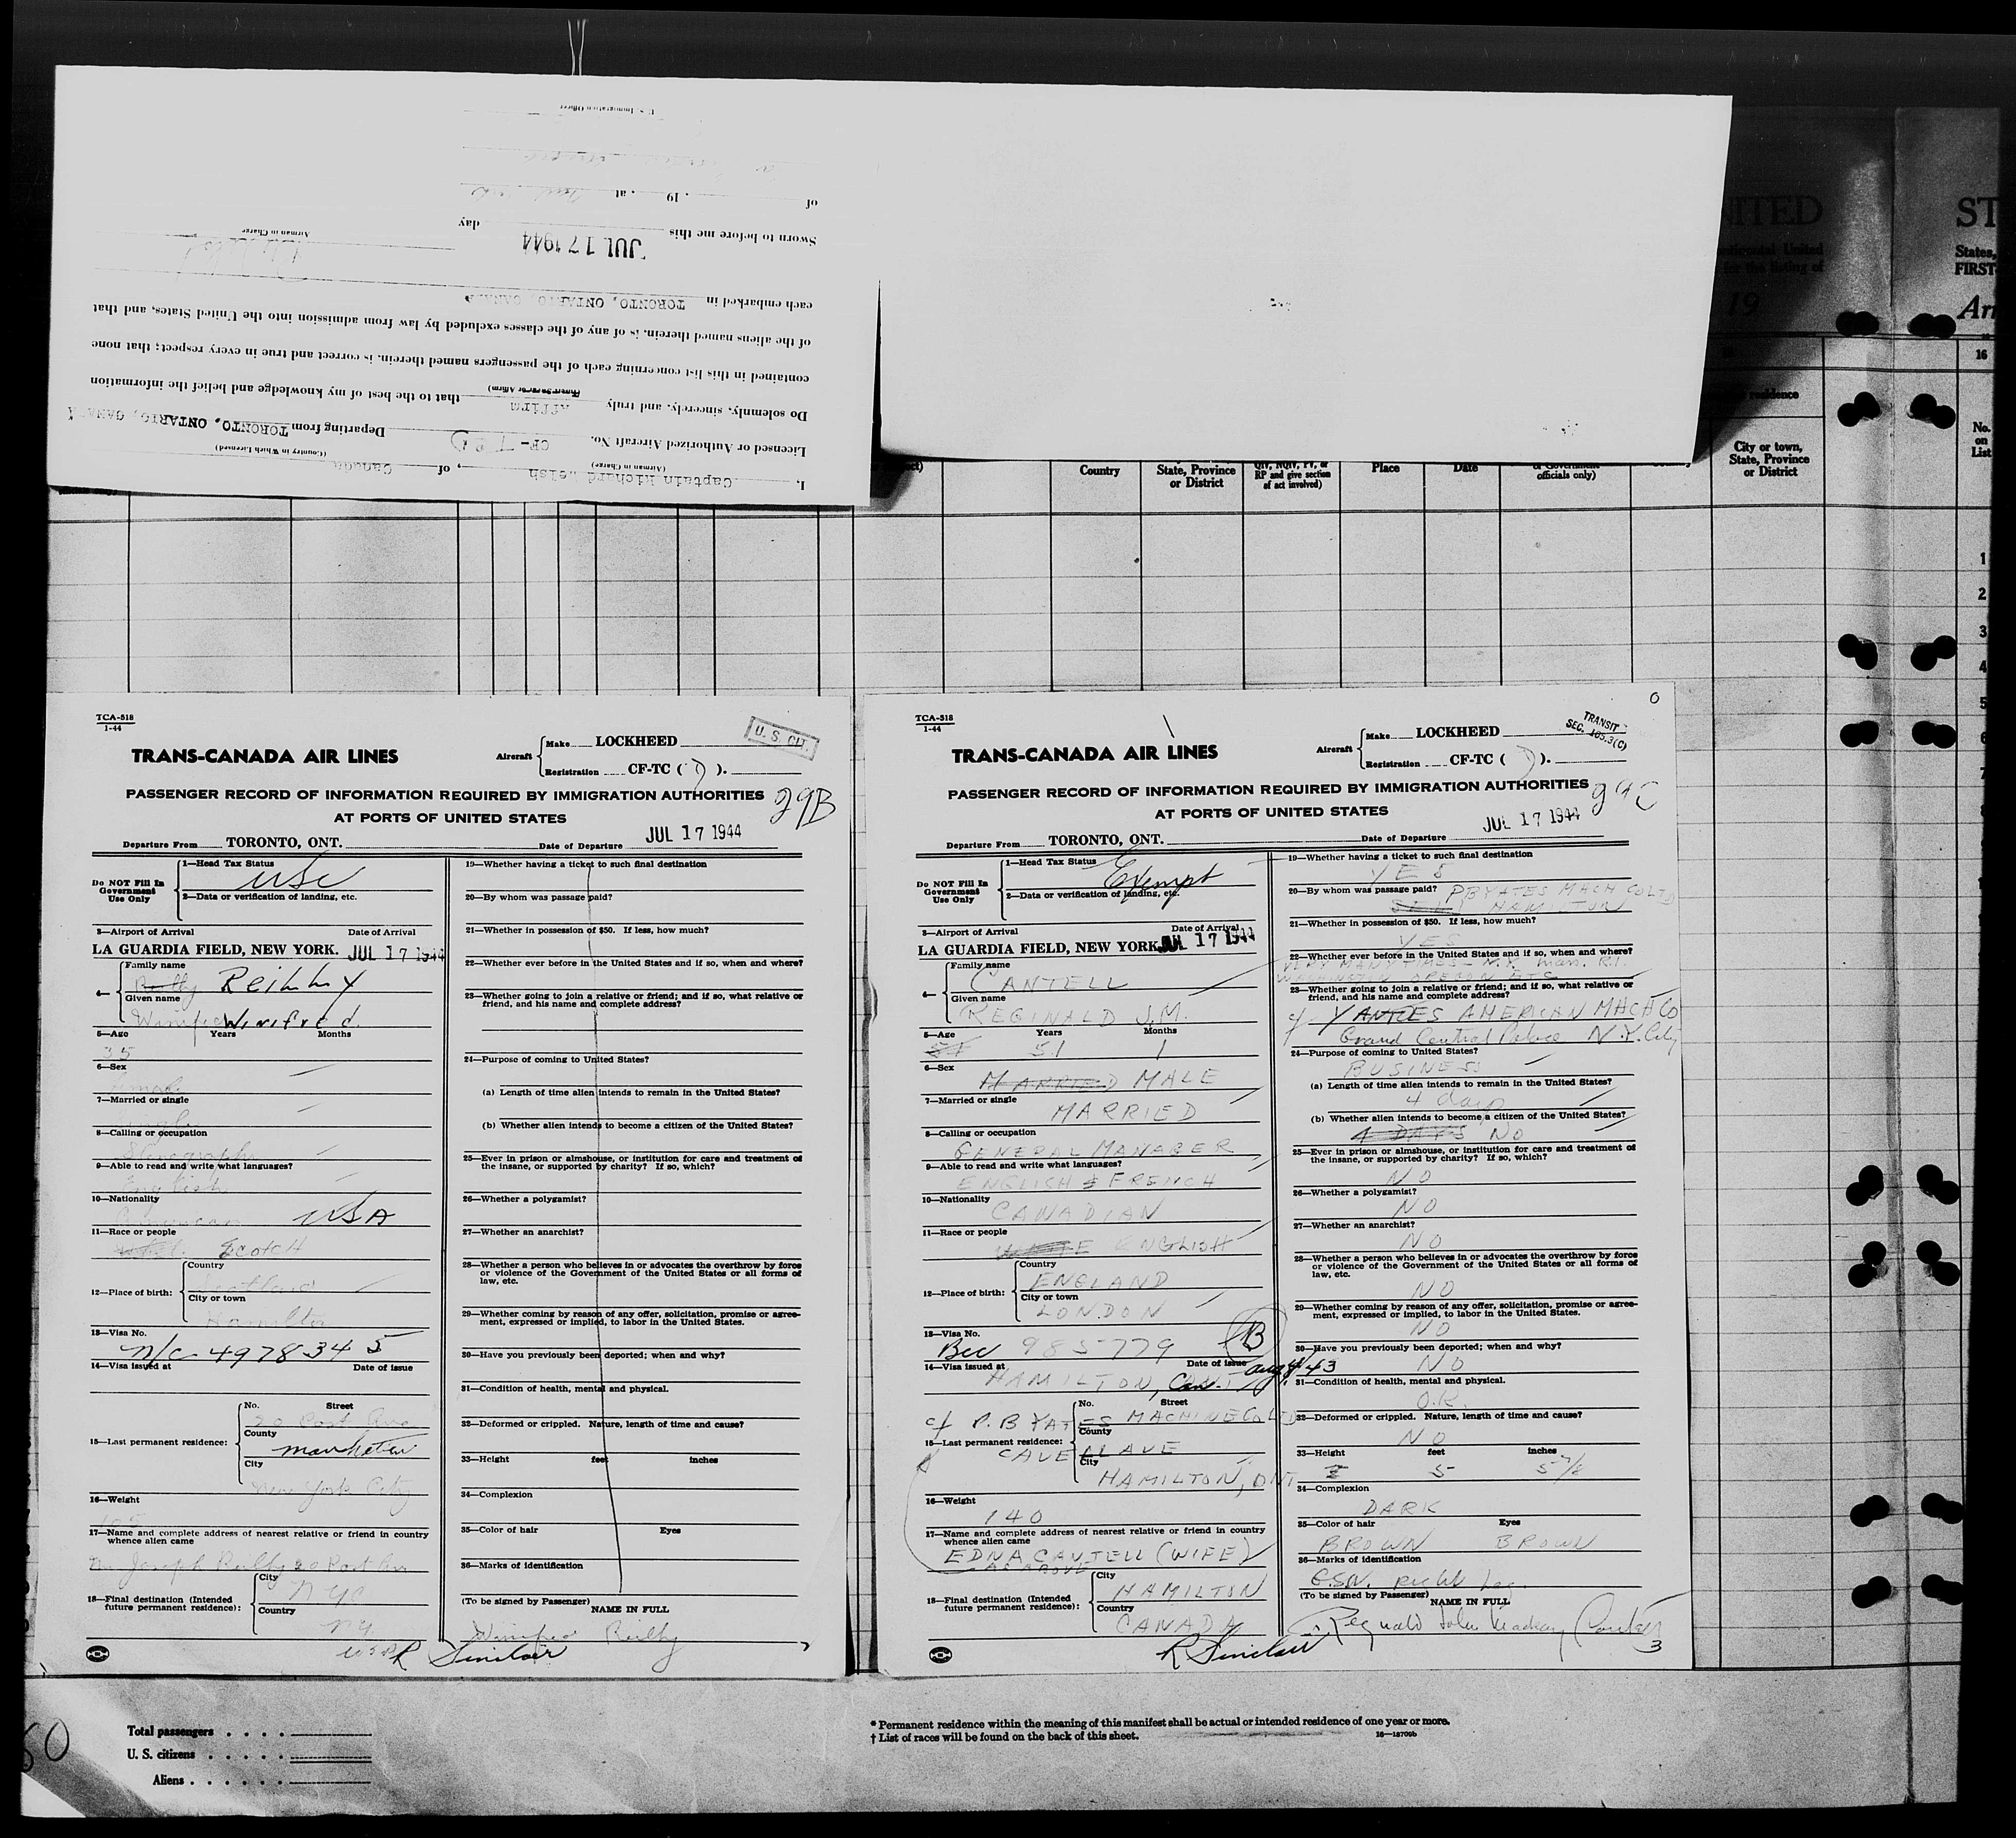 I, Captain Richard Welsh, of Canada
(Airman in Charge) (Country in Which Licensed)
Licensed or Authorized Aircraft No. CF-T Departing from TORONTO, ONTARIO, CANADA
Do solemnly, sincerely, and truly Affirm that to the best of my knowledge and belief the information
contained in this list concerning each of the passengers named therein, is correct and true in every respect; that none
of the aliens named therein, is of any of the classes excluded by law from admission into the United States, and that
each embarked in TORONTO, ONTARIO, CANADA
Airman in Charge
Sworn to before me this JUL 17 1944 day
of , 19 , at
U.S. Immigration Officer
NITED
ntinental United
for the listing of
19
residence
Country
State, Province
or District
QIV, NQIV, PV, or
RP and give section
of act involved)
Place
Date
or Government
officials only)
City or town,
State, Province
or District
ST
States,
FIRST
Arr
16
No.
on
List
1
2
3
4
5
6
7
TCA-518
1-44
TRANS-CANADA AIR LINES
Aircraft
Make LOCKHEED
Registration CF-TC ( ).
U. S. CIT.
PASSENGER RECORD OF INFORMATION REQUIRED BY IMMIGRATION AUTHORITIES
29B
AT PORTS OF UNITED STATES
Departure From TORONTO, ONT. Date of Departure JUL 17 1944
Do NOT Fill In
Government
Use Only
1—Head Tax Status
USC
2—Data or verification of landing, etc.
3—Airport of Arrival Date of Arrival
LA GUARDIA FIELD, NEW YORK. JUL 17 1944
4—
Family name
Reilly
Given name
Winifred
5—Age Years Months
35
6—Sex
7—Married or single
8—Calling or occupation
9—Able to read and write what languages?
English
10—Nationality
American USA
11—Race or people
Scotch
12—Place of birth:
Country
Scotland
City or town
Hamilton
13—Visa No.
N/C 4978345
14—Visa issued at Date of issue
15—Last permanent residence:
No. Street
20 Post Ave
County
Manhattan
City
New York City
16—Weight
105
17—Name and complete address of nearest relative or friend in country
whence alien came
Mr Joseph Reilly 20 Post Ave
18—Final destination (Intended
future permanent residence):
City
NYC
Country
NY
USA
19—Whether having a ticket to such final destination
20—By whom was passage paid?
21—Whether in possession of $50. If less, how much?
22—Whether ever before in the United States and if so, when and where?
23—Whether going to join a relative or friend; and if so, what relative or
friend, and his name and complete address?
24—Purpose of coming to United States?
(a) Length of time alien intends to remain in the United States?
(b) Whether alien intends to become a citizen of the United States?
25—Ever in prison or almshouse, or institution for care and treatment of
the insane, or supported by charity? If so, which?
26—Whether a polygamist?
27—Whether an anarchist?
28—Whether a person who believes in or advocates the overthrow by force
or violence of the Government of the United States or all forms of
law, etc.
29—Whether coming by reason of any offer, solicitation, promise or agree-
ment, expressed or implied, to labor in the United States.
30—Have you previously been deported; when and why?
31—Condition of health, mental and physical.
32—Deformed or crippled. Nature, length of time and cause?
33—Height feet inches
34—Complexion
35—Color of hair Eyes
36—Marks of identification
(To be signed by Passenger)
NAME IN FULL
Winifred Reilly
R Sinclair
TCA-518
1-44
TRANS-CANADA AIR LINES
Aircraft
Make LOCKHEED
Registration CF-TC ( ).
TRANSIT
SEC. 105.3(C)
PASSENGER RECORD OF INFORMATION REQUIRED BY IMMIGRATION AUTHORITIES
29C
AT PORTS OF UNITED STATES
Departure From TORONTO, ONT. Date of Departure JUL 17 1944
Do NOT Fill In
Government
Use Only
1—Head Tax Status
Exempt
2—Data or verification of landing, etc.
3—Airport of Arrival Date of Arrival
LA GUARDIA FIELD, NEW YORK. JUL 17 1944
4—
Family name
CANTELL
Given name
REGINALD J.M.
5—Age Years Months
51 1
6—Sex
MARRIED MALE
7—Married or single
MARRIED
8—Calling or occupation
GENERAL MANAGER
9—Able to read and write what languages?
ENGLISH & FRENCH
10—Nationality
CANADIAN
11—Race or people
WHITE ENGLISH
12—Place of birth:
Country
ENGLAND
City or town
LONDON
13—Visa No.
Bcc 985779 B
14—Visa issued at Date of issue
HAMILTON, Can. ONT Aug 4/43
15—Last permanent residence:
No. Street
c/ P.B YATES MACHINE CO LTD
County
CAVELL AVE
City
HAMILTON, ONT
16—Weight
140
17—Name and complete address of nearest relative or friend in country
whence alien came
EDNA CANTELL (WIFE)
AS ABOVE
18—Final destination (Intended
future permanent residence):
City
HAMILTON
Country
CANADA
19—Whether having a ticket to such final destination
YES
20—By whom was passage paid? P B YATES MACH CO LTD
HAMILTON
21—Whether in possession of $50. If less, how much?
YES
22—Whether ever before in the United States and if so, when and where?
VERY MANY TIMES - N.Y. Mass. R.I.
OREGON ETC
23—Whether going to join a relative or friend; and if so, what relative or
friend, and his name and complete address?
c/ YATES AMERICAN MACH CO
Grand Central Palace N.Y. City
24—Purpose of coming to United States?
BUSINESS
(a) Length of time alien intends to remain in the United States?
4 days
(b) Whether alien intends to become a citizen of the United States?
4 DAYS NO
25—Ever in prison or almshouse, or institution for care and treatment of
the insane, or supported by charity? If so, which?
NO
26—Whether a polygamist?
NO
27—Whether an anarchist?
NO
28—Whether a person who believes in or advocates the overthrow by force
or violence of the Government of the United States or all forms of
law, etc.
NO
29—Whether coming by reason of any offer, solicitation, promise or agree-
ment, expressed or implied, to labor in the United States.
NO
30—Have you previously been deported; when and why?
NO
31—Condition of health, mental and physical.
O.K.
32—Deformed or crippled. Nature, length of time and cause?
NO
33—Height feet inches
5 5 7/8
34—Complexion
DARK
35—Color of hair Eyes
BROWN BROWN
36—Marks of identification
G.S.W. right leg
(To be signed by Passenger)
NAME IN FULL
Reginald John Cantell
R Sinclair
3
Total passengers
U. S. citizens
Aliens
* Permanent residence within the meaning of this manifest shall be actual or intended residence of one year or more.
† List of races will be found on the back of this sheet.
16—18709b